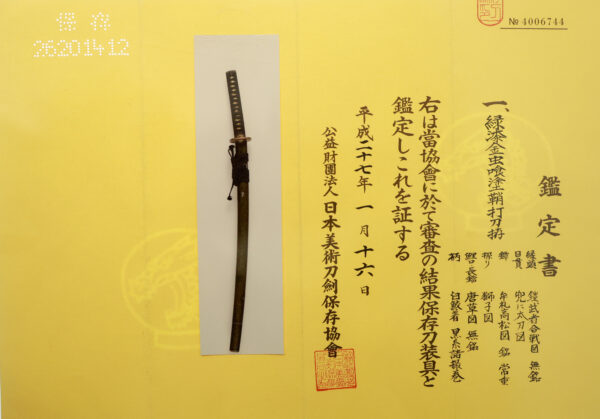 № 4006744
保存
26201412
鑑定書
一、緑漆金虫喰塗鞘打刀拵
縁頭 鎧武者合戦図 無銘
目貫 兜に太刀図
鐔 牟礼高松図 銘 常重
獅子図
唐草図 無銘
柄 白鮫着 黒糸諸撮巻
右は當協會に於て審査の結果保存刀装具と
鑑定しこれを証する
平成二十七年一月十六日
公益財團法人日本美術刀劍保存協會